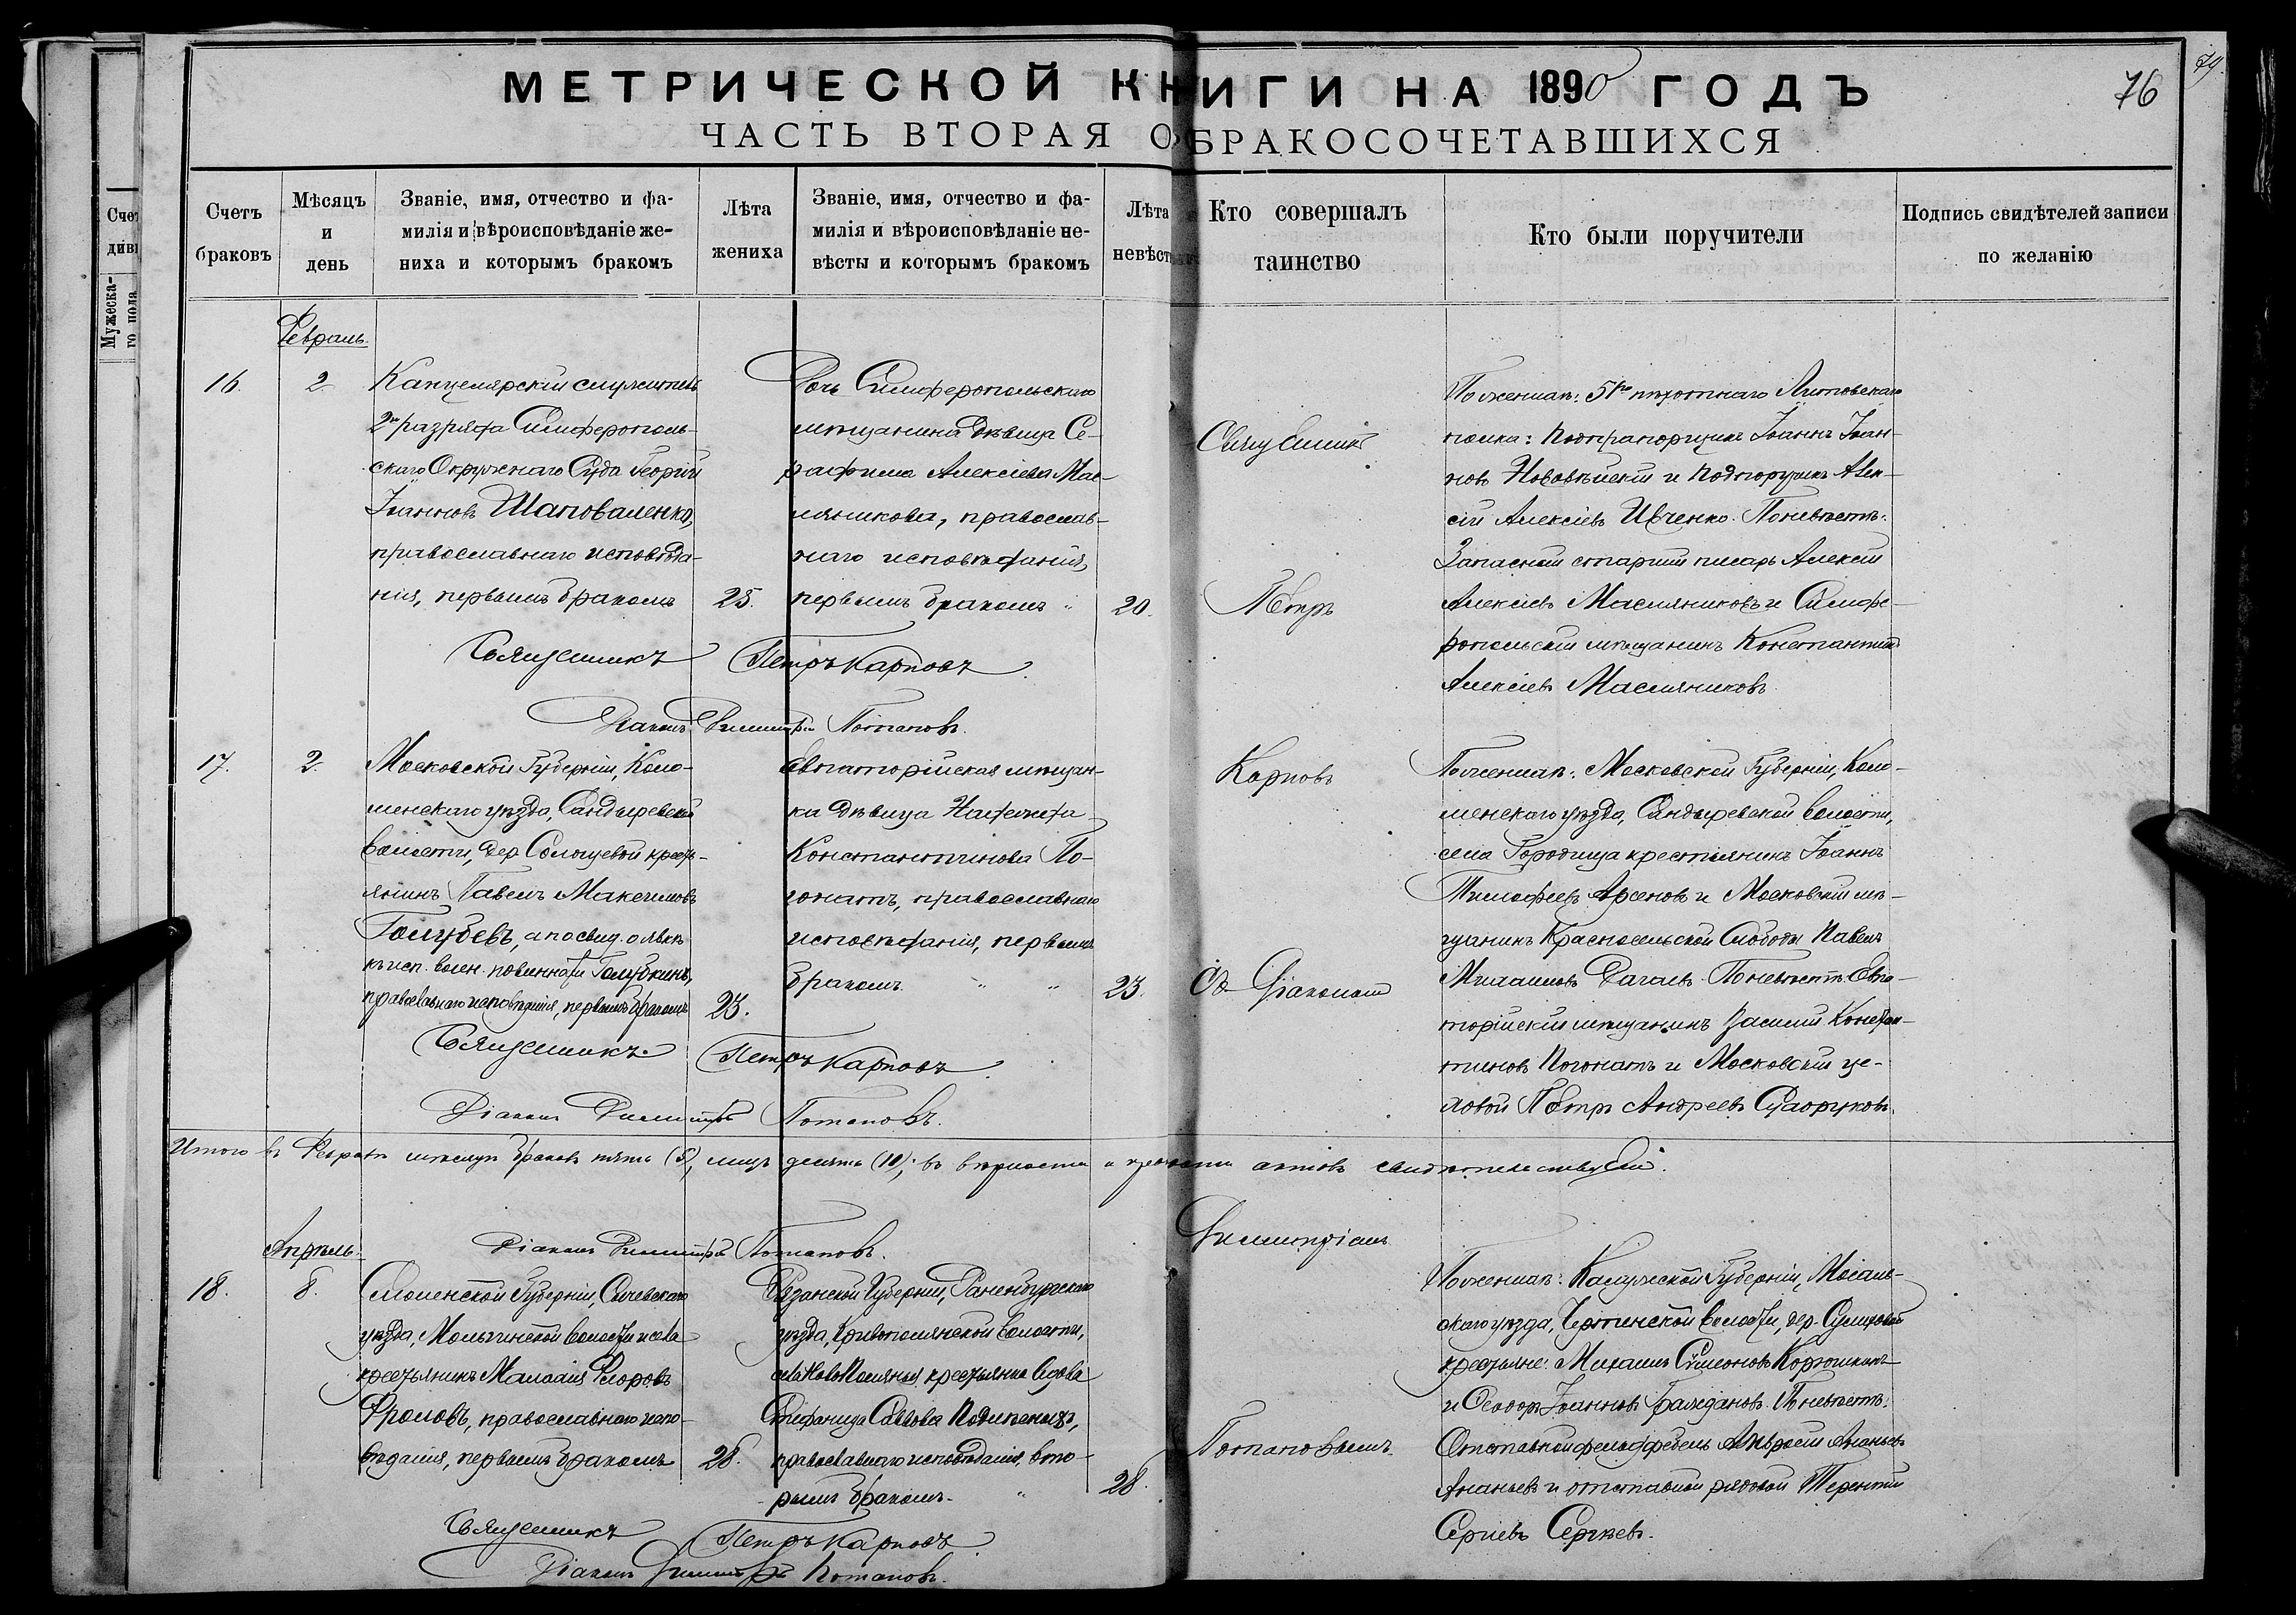 МЕТРИЧЕСКОЙ КНИГИ НА 1890 ГОДЪ
76
79.
ЧАСТЬ ВТОРАЯ О БРАКОСОЧЕТАВШИХСЯ
Счетъ
браковъ
Мѣсяцъ
и
день
Званіе, имя, отчество и фа-
милія и вѣроисповѣданіе же-
ниха и которымъ бракомъ
Лѣта
жениха
Званіе, имя, отчество и фа-
милія и вѣроисповѣданіе не-
вѣсты и которымъ бракомъ
Лѣта
невѣст
Кто совершалъ
таинство
Кто были поручители
Подпись свидѣтелей записи
по желанію
Счет
диви
Мужеска-
го пола
Февраль.
16.
2.
Канцелярскій служитель
2го разряда Симферополь-
скаго Окружнаго Суда Георгій
Іоанновъ Шаповаленко,
православнаго исповѣда-
нія, первымъ бракомъ
25.
Дочь Симферопольскаго
мѣщанина дѣвица Се-
рафима Алексіева Мас-
лянникова, православ-
наго исповѣданія,
первымъ бракомъ
20.
Священникъ
Петръ
По женихѣ: 5го пѣхотнаго Литовскаго
полка: Подпрапорщикъ Іоаннъ Іоан-
новъ и Подпоручикъ Алек-
сій Алексіевъ Ивченко. По невѣстѣ:
Запасной старшій писарь Алексій
Алексіевъ Маслянниковъ и Симфе-
ропольскій мѣщанинъ Константинъ
Алексіевъ Маслянниковъ.
Священникъ Петръ Карповъ.
Діаконъ Димитрій Потаповъ.
17.
2.
Московской Губерніи, Коло-
менскаго уѣзда, Сандыревской
волости, дер. крест-
янинъ Павелъ Максимовъ
Голубевъ, а по свид. о явкѣ
къ исп. воин. повинности Голубкинъ,
православнаго исповѣданія, первымъ бракомъ
23.
Евпаторійская мѣщан-
ка дѣвица Надежда
Константинова По-
гонатъ, православнаго
исповѣданія, первымъ
бракомъ
23.
Карповъ
съ Діакономъ
По женихѣ: Московской Губерніи, Коло-
менскаго уѣзда, Сандыревской волости,
села Городища крестьянинъ Іоаннъ
Тимофеевъ Арсеновъ и Московскій мѣ-
щанинъ Красносельской Слободы Павелъ
По невѣстѣ: Евпа-
торійскій мѣщанинъ Василій Констан-
тиновъ Погонатъ и Московскій це-
ховой Петръ Андреевъ
Священникъ Петръ Карповъ.
Діаконъ Димитрій Потаповъ.
Итого въ Февралѣ мѣсяцѣ браковъ пять (5), лицъ десять (10); въ вѣрности и актовъ свидѣтельствуемъ.
Апрѣль.
Діаконъ Димитрій Потаповъ.
Димитріемъ
18.
8.
Смоленской Губерніи, Сычевскаго
уѣзда, волости и села
крестьянинъ Малахія Феоровъ
Фроловъ, православнаго испо-
вѣданія, первымъ бракомъ
28.
Рязанской Губерніи, Раненбургскаго
уѣзда, Кривополянской волости,
села Новополянья крестьянка вдова
Епифанида Саввова
православнаго исповѣданія, вто-
рымъ бракомъ
28.
Потаповымъ
По женихѣ: Калужской Губерніи, Мосаль-
скаго уѣзда, волости, дер.
крестьяне: Михаилъ Симеоновъ Корюшкинъ
и Феодоръ Іоанновъ По невѣстѣ:
Отставной фельдфебель Амвросій Ананьевъ
Ананьевъ и отставной рядовой Терентій
Сергіевъ Сергѣевъ.
Священникъ Петръ Карповъ
Діаконъ Димитрій Потаповъ.